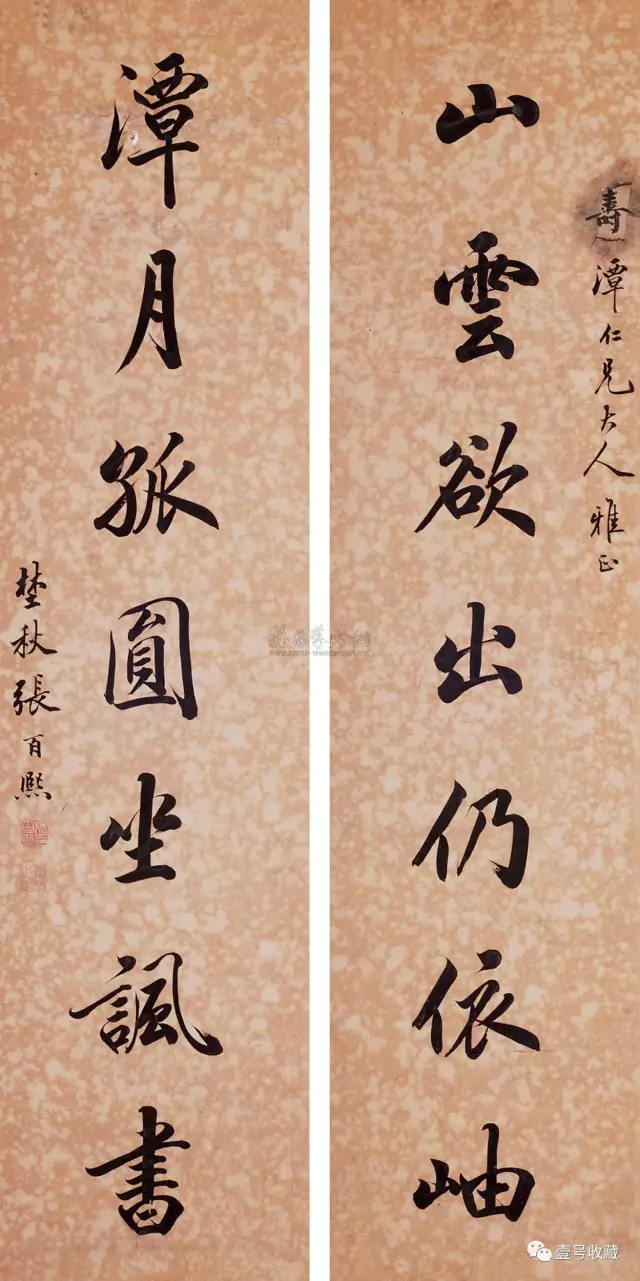 壽潭仁兄大人雅正
山雲欲出仍依岫
潭月孤圓坐諷書
埜秋張百熙
壹号收藏